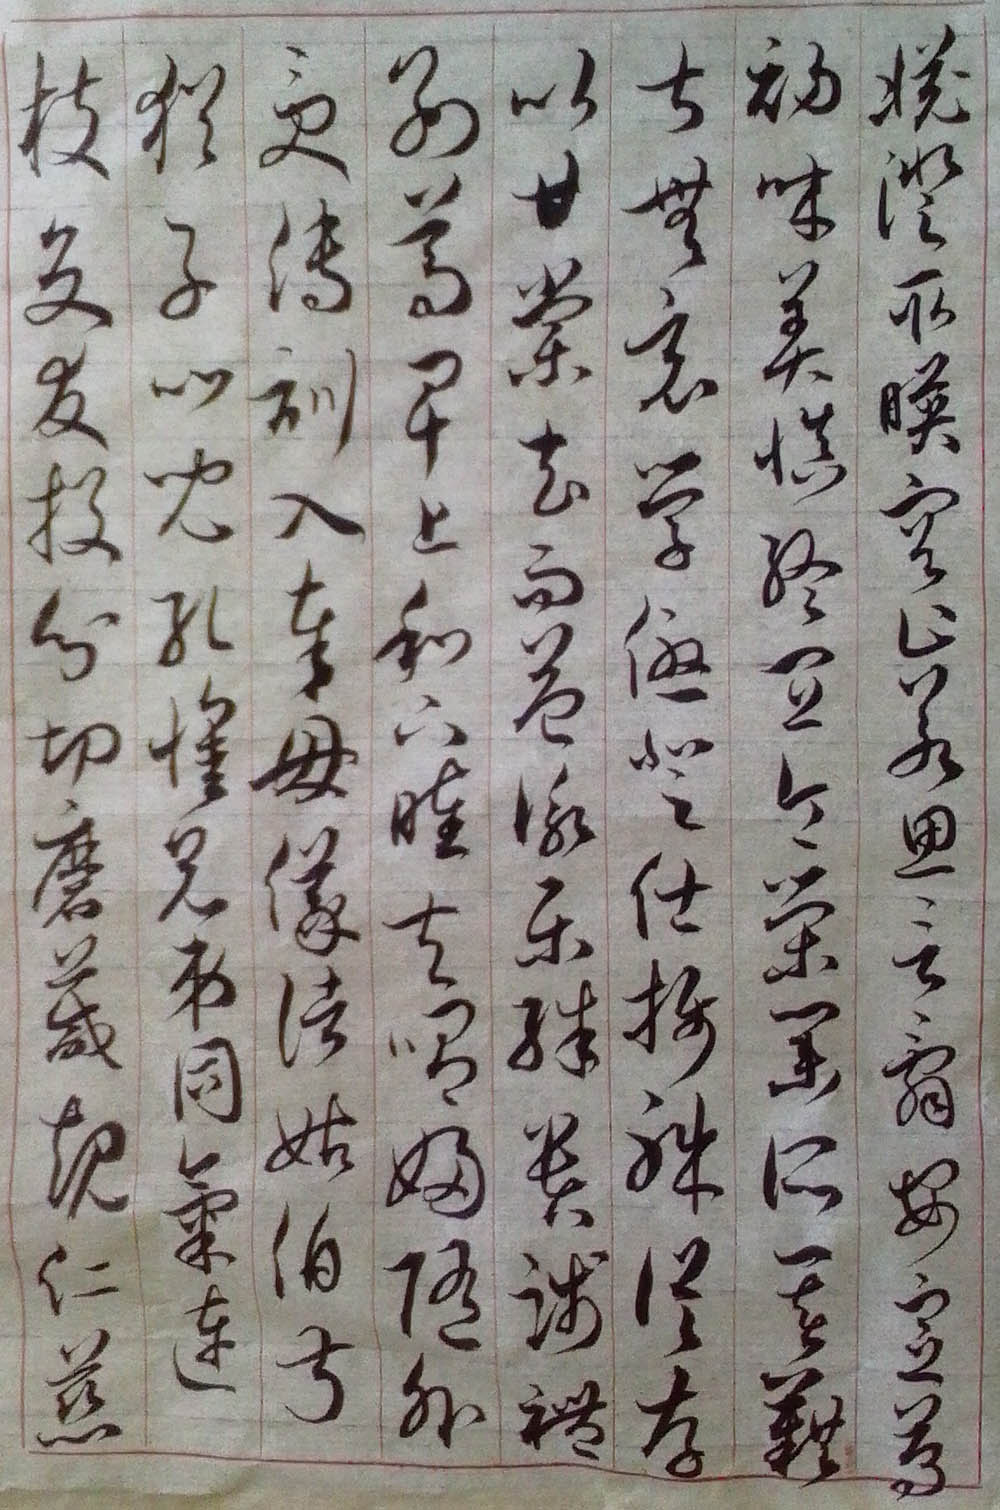 淵澄取暎容止若思言辭安定篤
初誠美慎終宜令榮業所基籍
甚無竟學優登仕攝職從存
以甘棠去而益詠樂殊貴賤禮
別尊卑上和下睦夫唱婦隨外
受傅訓入奉母儀諸姑伯叔
猶子比兒孔懷兄弟同氣連
枝交友投分切磨箴規仁慈